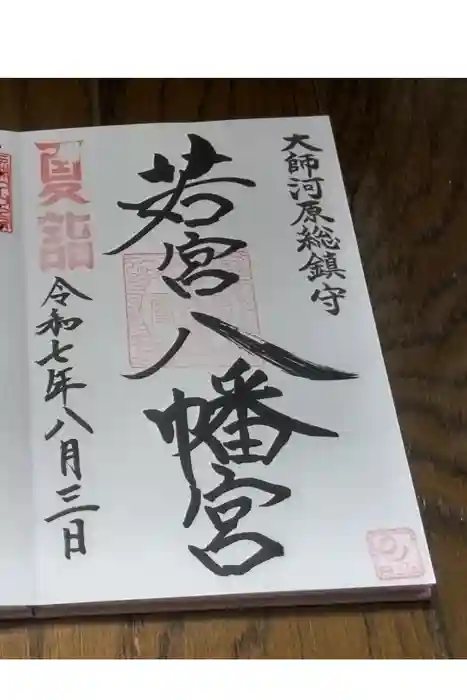 大師河原総鎮守
若宮八幡宮
夏詣
令和七年八月三日